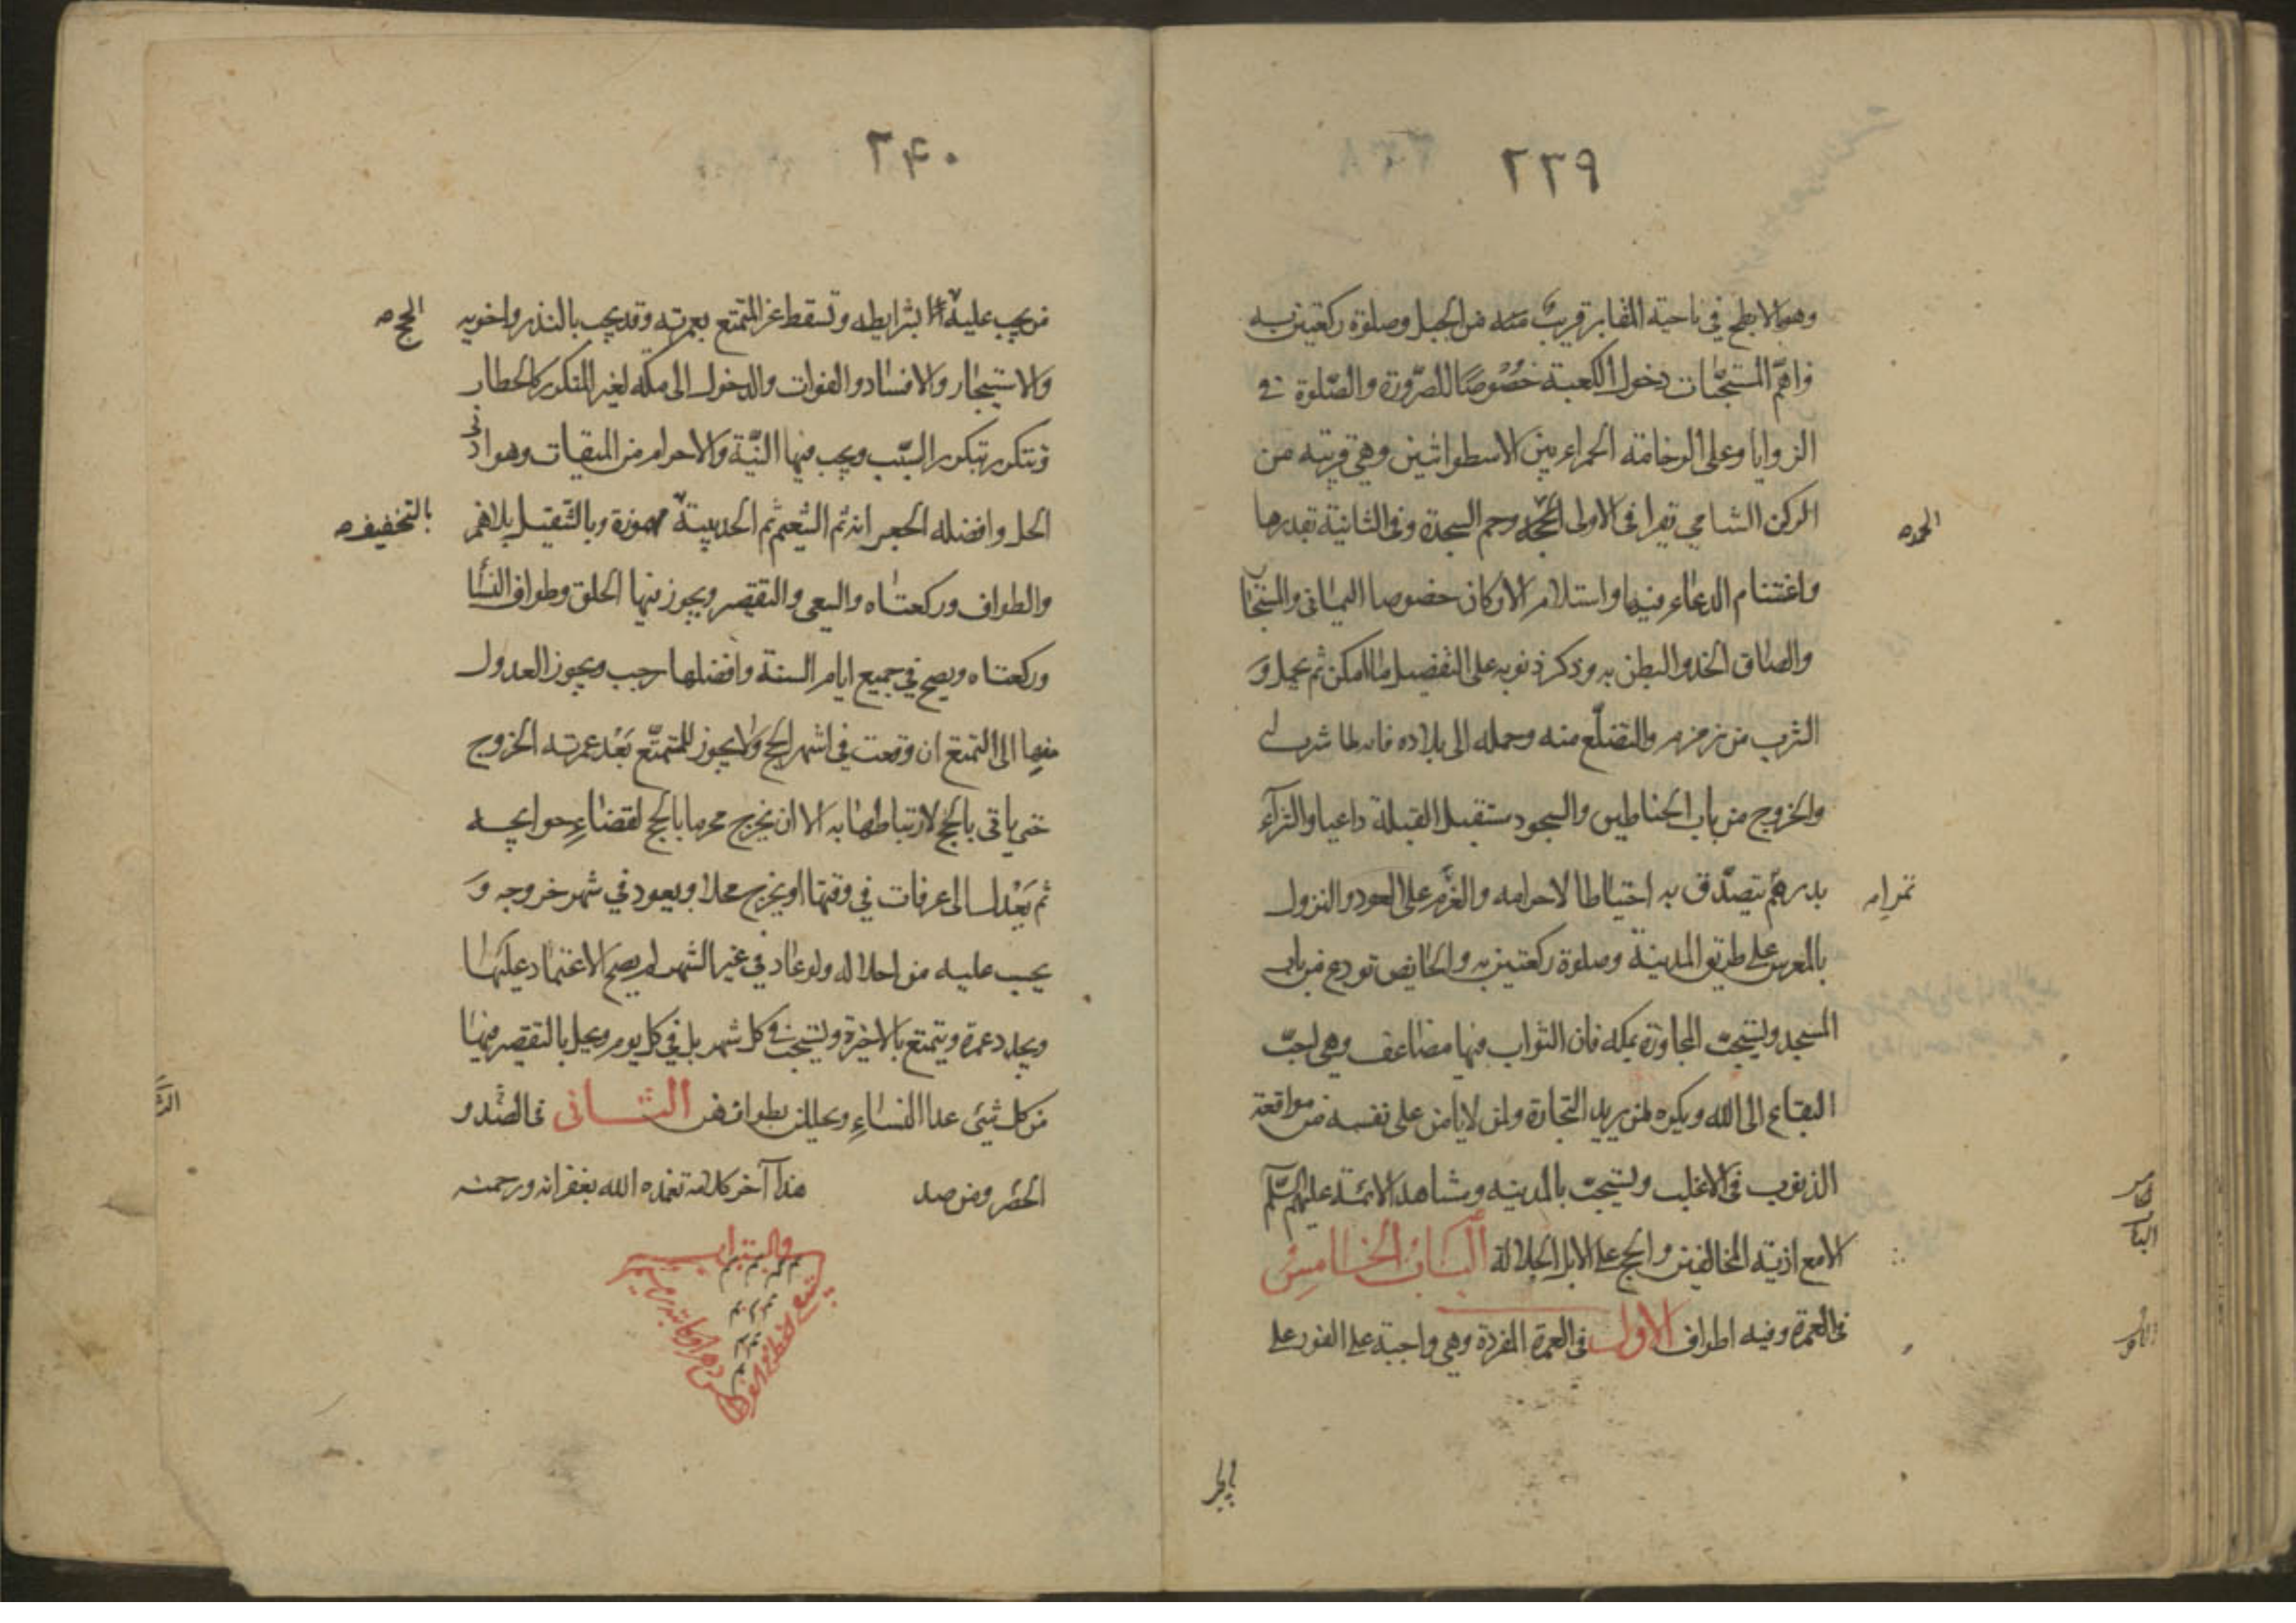 ٢٣٩
وهو الابطح في ناحية المقابر قريب منه من الجبل وصلوة ركعتين به
واهم المستحبات دخول الكعبة خصوصا للصرورة والصلوة في
الزوايا وعلى الرخامة الحمراء بين الاسطوانتين وهي قريبة من
الركن الشامي تقرا في الاولى الحمد وحم السجدة وفي الثانية بقدرها
الحمد
واغتنام الدعاء فيها واستلام الاركان خصوصا اليماني والمستجار
والصاق الخد والبطن به وذكر ذنوبه على التفضيل ما امكن ثم يحمد و
الشرب من زمزم والتضلع منه وحمله الى بلاده فانه لما شرب له
والخروج من باب الحناطين والسجود مستقبل القبلة داعيا والشراء
بدرهم يتصدق به احتياطا لاحرامه والعزم على العود والنزول
تمرا
بالمعرس على طريق المدينة وصلوة ركعتين به والحايض تودع من باب
المسجد ويستحب المجاورة بمكه فان الثواب فيها مضاعف وهي احب
البقاع الى الله ويكره لمن يريد التجارة ولمن لا يامن على نفسه من مواقعة
الذنوب في الاغلب ويستحب بالمدينه ومشاهد الائمة عليهم السلم
الا مع اذية المخالفين والحج على الابل الجلالة الباب الخامس
في العمرة وفيه اطراف الاول في العمرة المفردة وهي واجبة على الفور على
٢٤٠
من يجب عليه بشرايطه وتسقط عن المتمتع بعمرته وقد يجب بالنذر واخويه
الحج
والاستيجار والافساد والفوات والدخول الى مكه لغير المتكرر كالحطاب
وتتكرر بتكرر السبب ويجب فيها النية والاحرام من الميقات وهو ادنى
الحل وافضله الجعرانه ثم التنعيم ثم الحديبية مهموزة وبالتثقيل بلا همز
بالتخفيف
والطواف وركعتاه والسعي والتقصير ويجوز فيها الحلق وطواف النسا
وركعتاه ويصح في جميع ايام السنة وافضلها رجب ويجوز العدول
منها الى التمتع ان وقعت في اشهر الحج ولا يجوز للمتمتع بعد عمرته الخروج
حتى ياتي بالحج لارتباطها به الا ان يخرج محرما بالحج لقضاء حوايجه
ثم يعدل الى عرفات في وقتها او يخرج محلا ويعود في شهر خروجه و
يجب عليه من احلاله ولو عاد في غير الشهر لم يصح الاعتماد عليها
ويجدد عمرة ويتمتع بالاخيرة ويستحب في كل شهر بل في كل يوم ويحل بالتقصير منها
من كل شيئ عدا النساء ويحللن بطوافهن الثاني في الصد و
الحصر ومن صد هذا آخر كلامه تغمده الله بغفرانه ورحمته